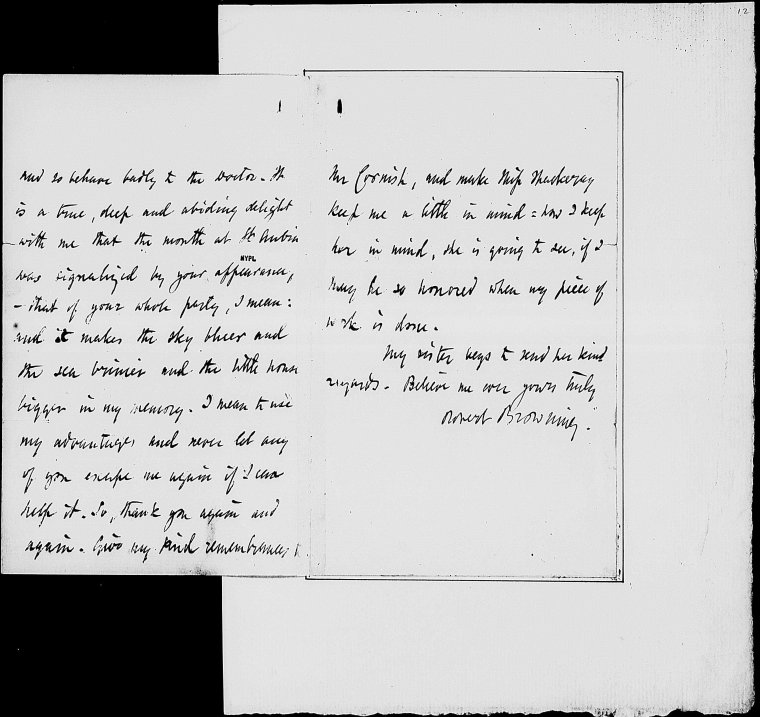 12
and so behave badly to the Doctor. It
is a true, deep and abiding delight
with me that the month at St Aubin
NYPL
was signalized by your appearance,
- that of your whole party, I mean:
and it makes the sky bluer and
the sea brinier and the little house
bigger in my memory. I mean to use
my advantages and never let any
of you escape me again if I can
help it. So, thank you again and
again. Give my kind remembrances to
Mr Cornish, and make Miss Thackeray
keep me a little in mind = how I keep
her in mind, she is going to see, if I
may be so honored when my piece of
work is done.
My sister begs to send her kind
regards. Believe me ever yours truly
Robert Browning.